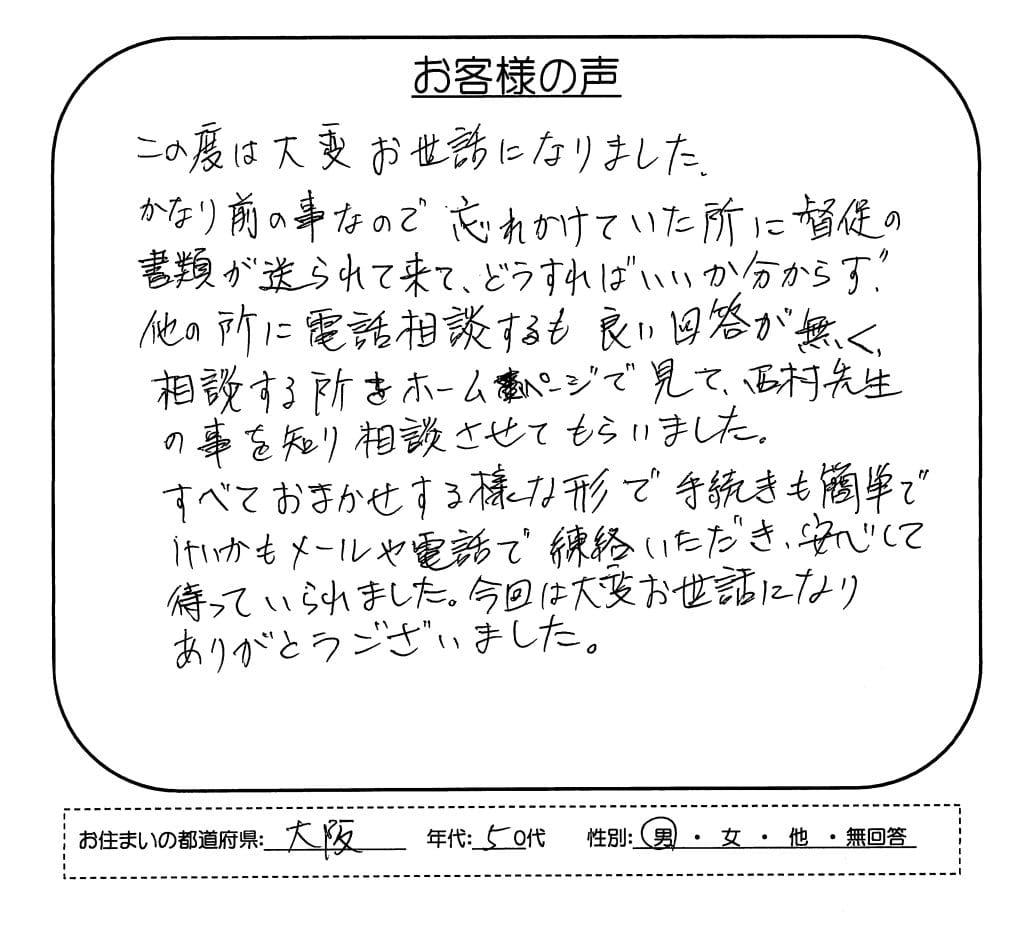 お客様の声
この度は大変お世話になりました.
かなり前の事なので忘れかけていた所に督促の
書類が送られて来て、どうすればいいか分からず、
他の所に電話相談するも良い回答が無く、
相談する所をホームページで見て、西村先生
の事を知り相談させてもらいました。
すべておまかせする様な形で手続きも簡単で
けいかもメールや電話で練絡いただき、安心して
待っていられました。今回は大変お世話になり
ありがとうございました。
お住まいの都道府県: 大阪 年代: 50代 性別: 男 ・ 女 ・ 他 ・ 無回答